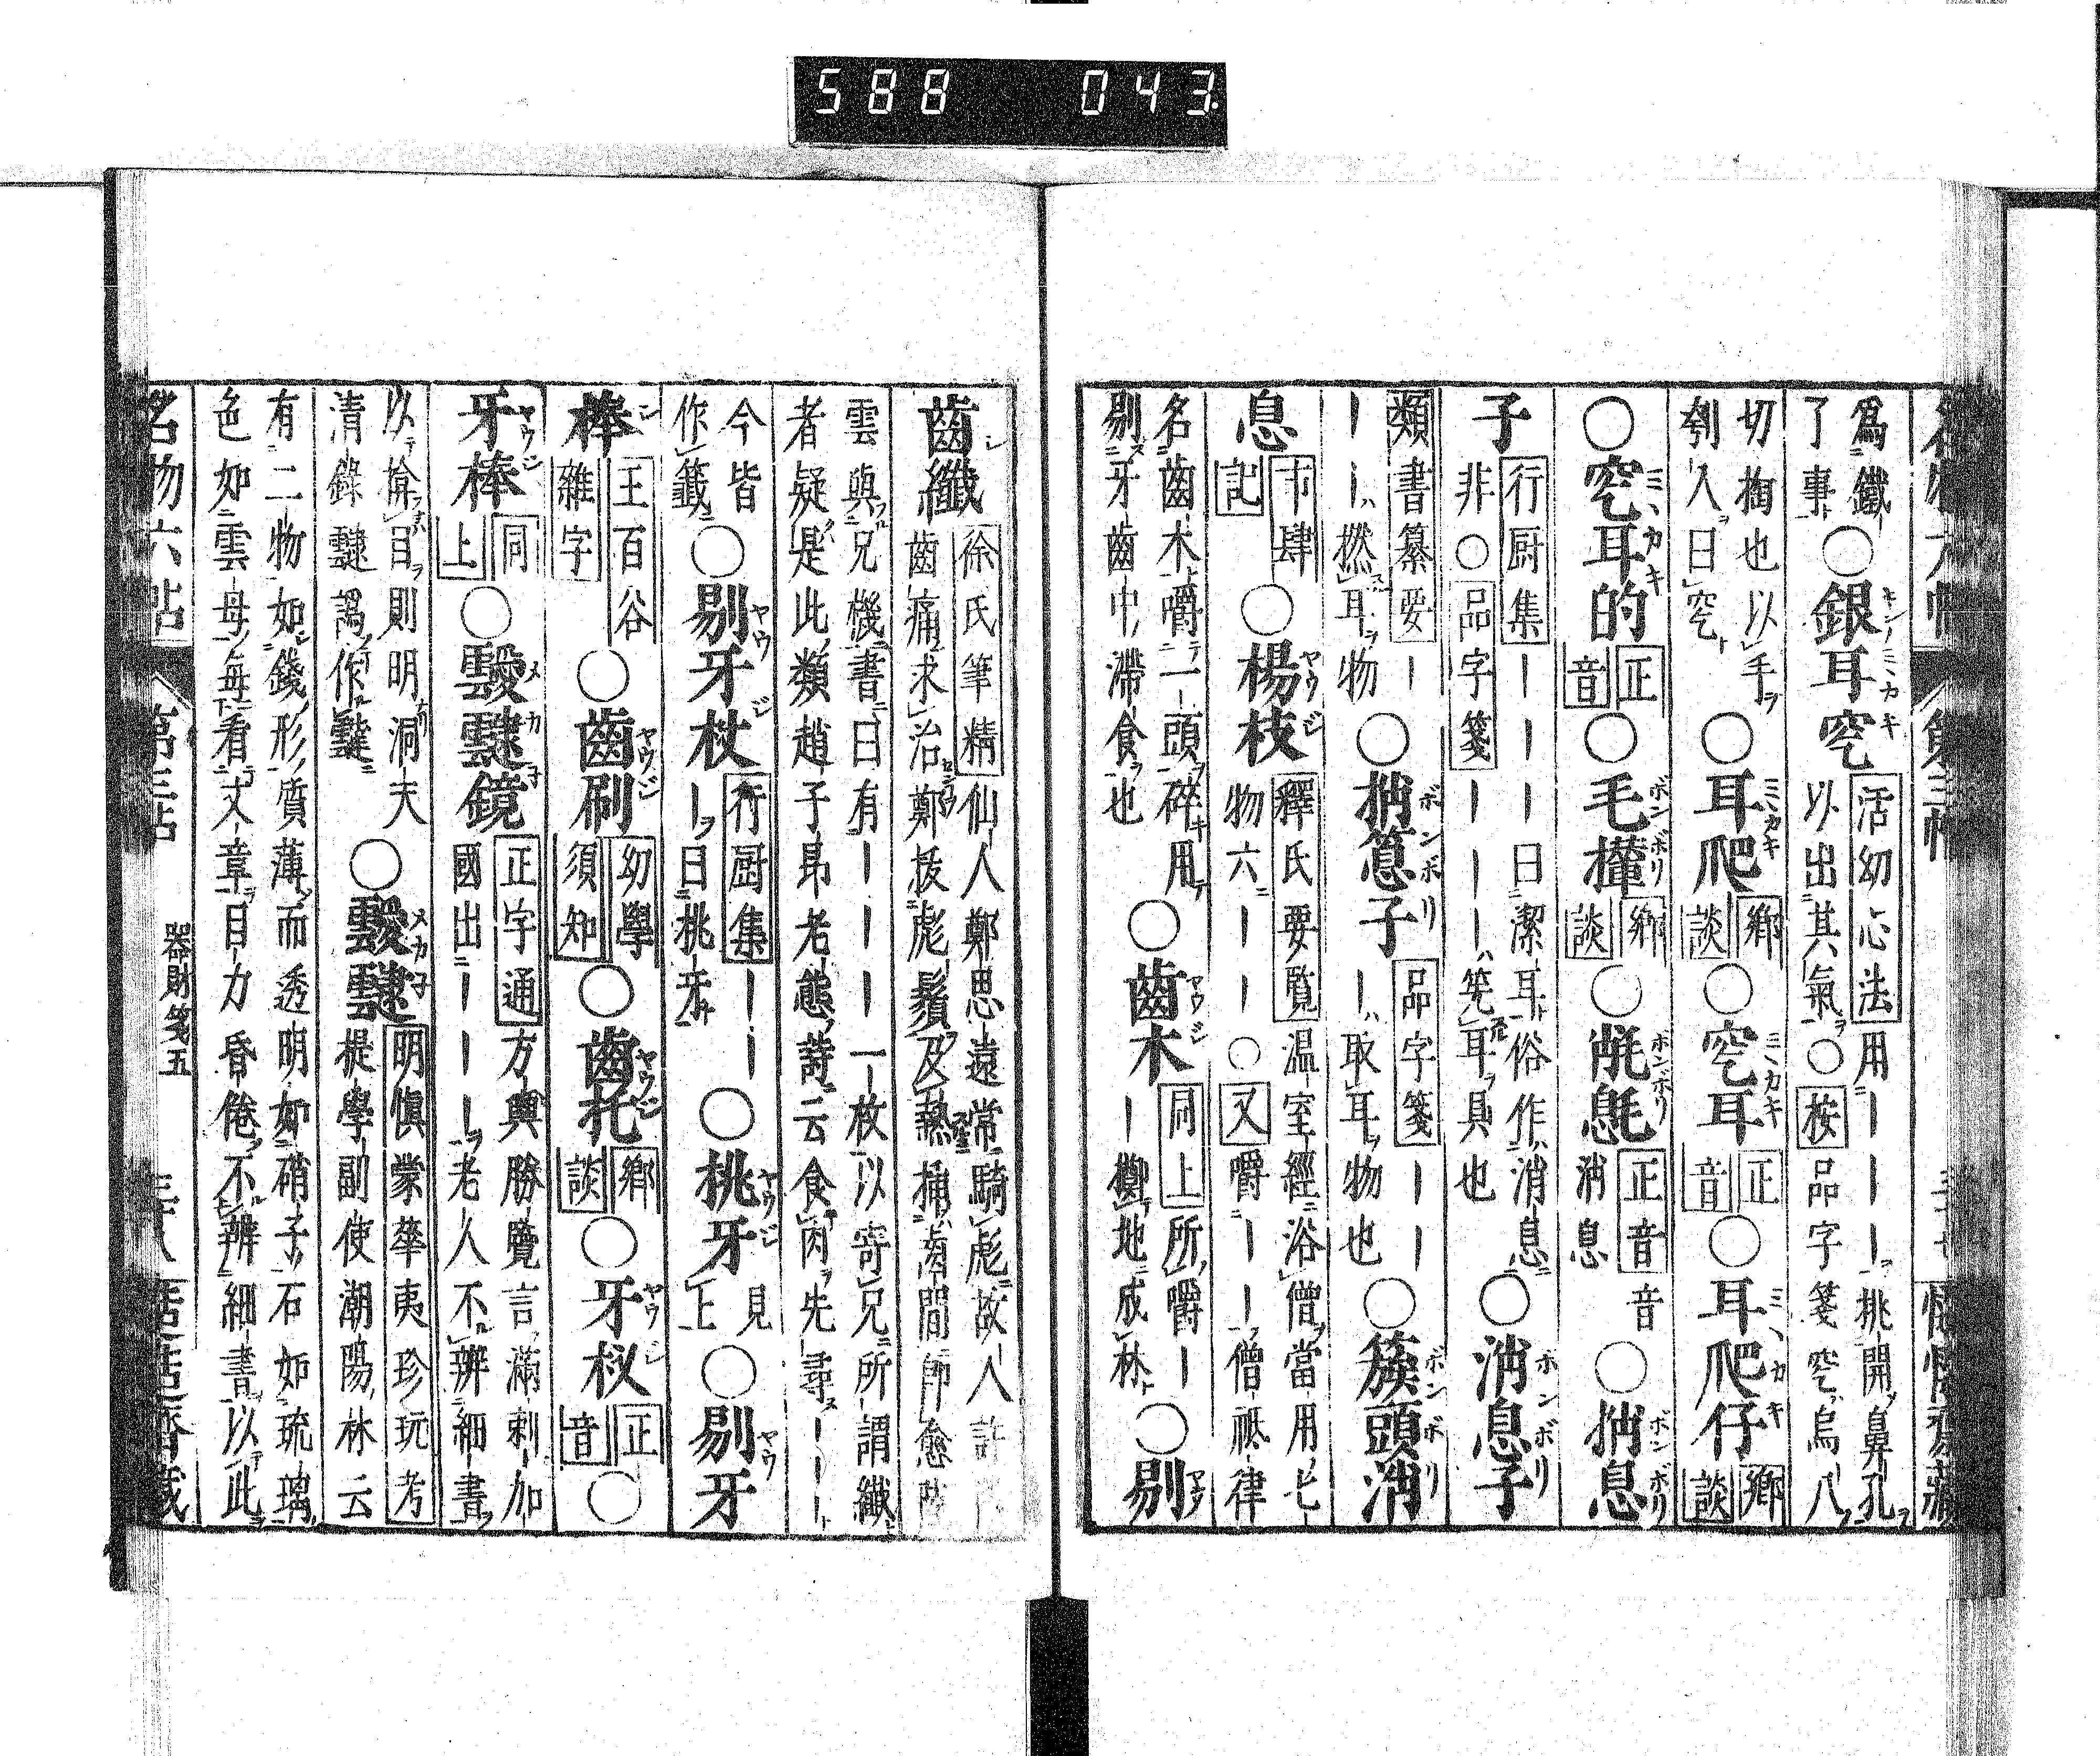 588 043
爲鐵
了事
○銀耳穵
活幼心法用｜｜｜挑開鼻孔
以出其氣○按品字箋穵烏八
切掏也以手
刳入曰穵
○耳爬
鄉談
○穵耳
正音
○耳爬仔
鄉談
○穵耳的
正音
○毛撞
鄉談
○毷毸
正音音
消息
○捎息
子
行厨集｜｜｜曰潔耳俗作消息
非○品字箋｜｜｜筅耳具也
○消息子
類書纂要｜
｜｜撚耳物
○捎箵子
品字箋｜｜
｜取耳物也
○簇頭消
息
市肆
記
○楊枝
釋氏要覧温室經浴僧當用七
物六｜｜○又嚼｜｜僧祗律
名齒木嚼一頭碎用
剔牙齒中滯食也
○齒木
同上所嚼｜
｜擲地成林
○剔
齒纖
徐氏筆精仙人鄭思遠常騎彪故人許
齒痛求治鄭拔彪鬚及熱揷齒間即愈陸
雲與兄機書曰有｜｜｜一枚以寄兄所謂纖
者疑是此類趙子昻老態詩云食肉先尋｜｜
今皆
作籤
○剔牙杖
行厨集｜｜
｜曰桃牙
○桃牙
見
上
○剔牙
棒
王百谷
雜字
○齒刷
幼學
須知
○齒托
鄉談
○牙杈
正音
○
牙棒
同
上
○靉靆鏡
正字通方輿勝覽言滿剌加
國出｜｜｜老人不辨細書
以揜目則明洞天
清錄靆譌作靆
○靉靆
明愼蒙華夷珍玩考
提學副使潮陽林云
有二物如錢形質薄而透明如硝子石如琉璃
色如雲母每看文章目力昏倦不辨細書以此
器財箋五